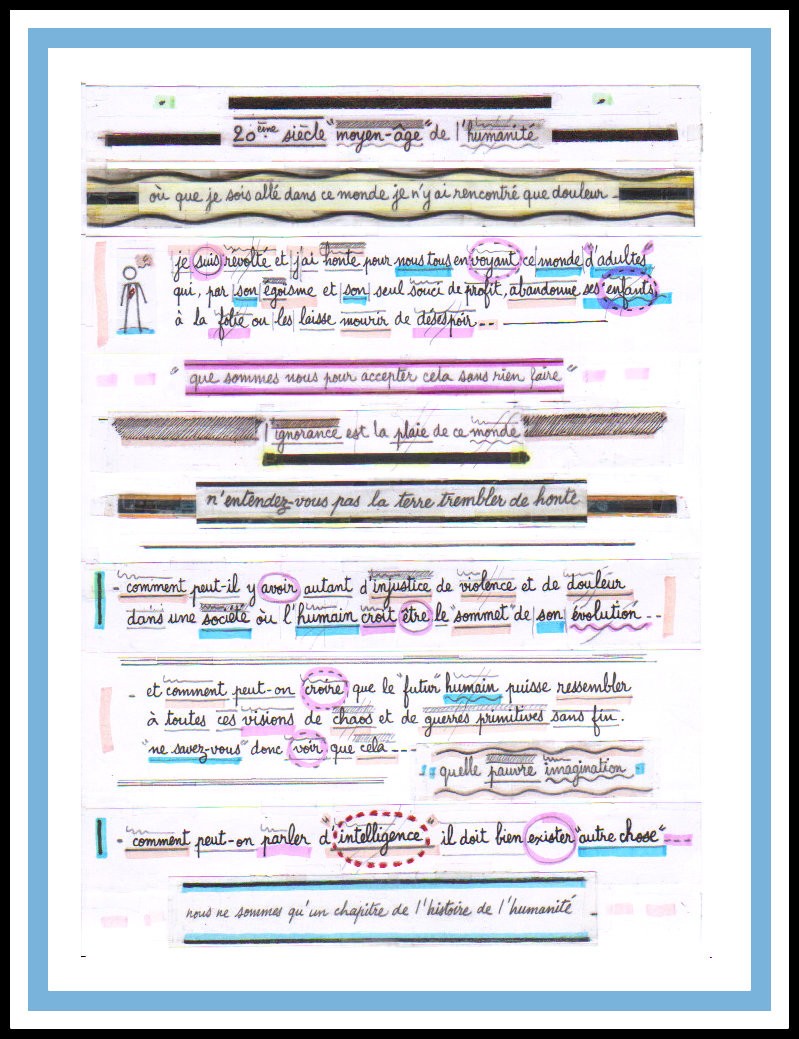 20ème siècle "moyen-âge" de l'humanité
où que je sois allé dans ce monde je n'y ai rencontré que douleur -
je suis révolté et j'ai honte pour nous tous en voyant ce monde d'"adultes"
qui, par son égoïsme et son seul souci de profit, abandonne ses "enfants"
à la folie ou les laisse mourir de désespoir ---
"que sommes nous pour accepter cela sans rien faire"
l'ignorance est la plaie de ce monde
n'entendez-vous pas la terre trembler de honte
- comment peut-il y avoir autant d'injustice de violence et de douleur
dans une société où l'humain croit être le "sommet" de son évolution ---
- et comment peut-on croire que le "futur" humain puisse ressembler
à toutes ces visions de chaos et de guerres primitives sans fin.
"ne savez-vous" donc voir que cela ---
quelle pauvre imagination
- comment peut-on parler d'"intelligence" il doit bien exister "autre chose" ---
nous ne sommes qu'un chapitre de l'histoire de l'humanité -